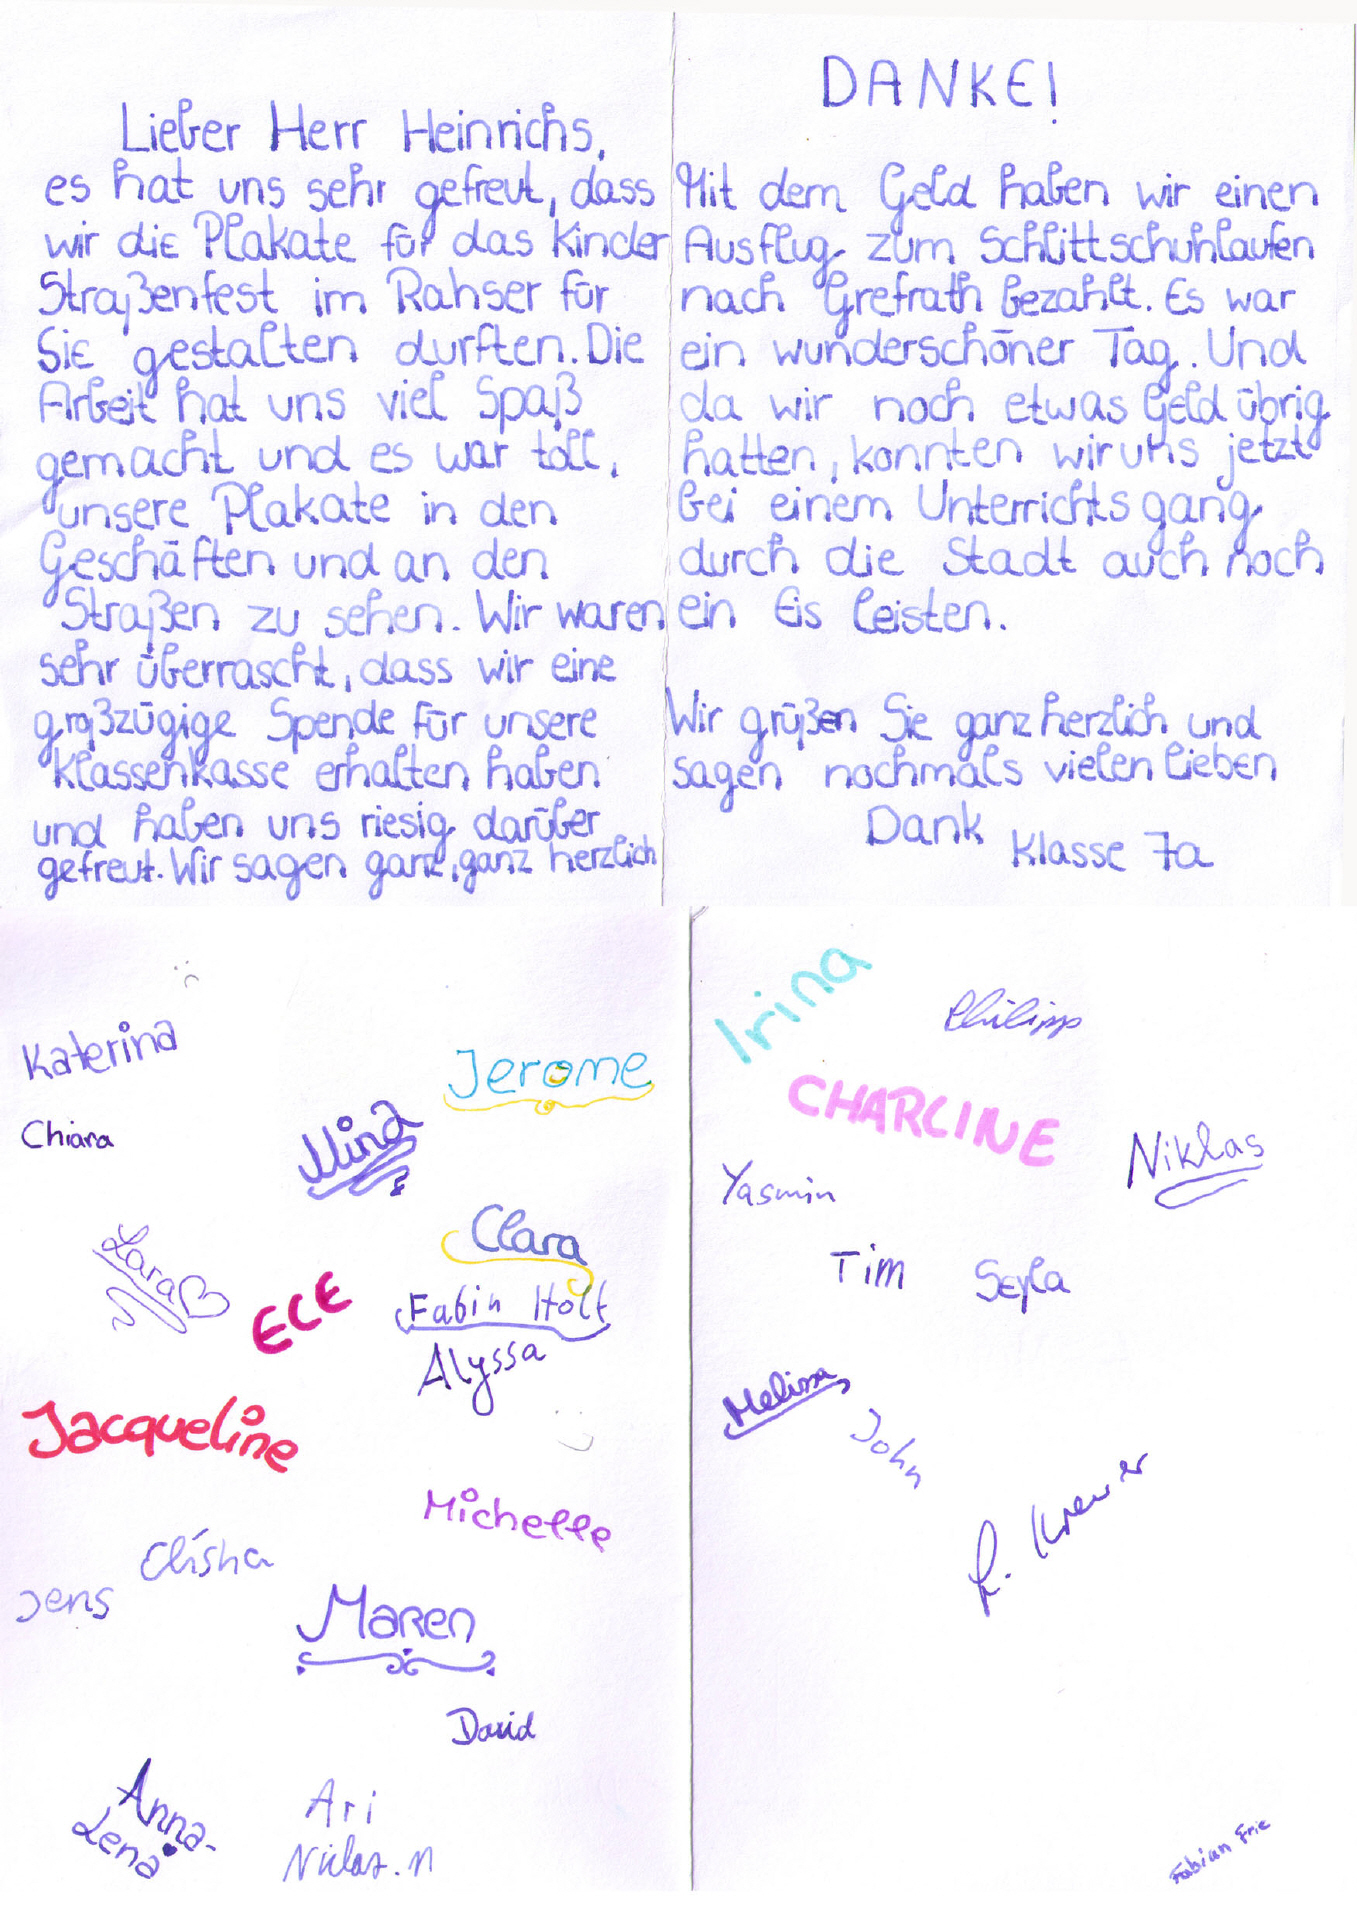 Lieber Herr Heinrichs,
es hat uns sehr gefreut, dass
wir die Plakate für das Kinder
Straßenfest im Rahser für
Sie gestalten durften. Die
Arbeit hat uns viel Spaß
gemacht und es war toll,
unsere Plakate in den
Geschäften und an den
Straßen zu sehen. Wir waren
sehr überrascht, dass wir eine
großzügige Spende für unsere
Klassenkasse erhalten haben
und haben uns riesig darüber
gefreut. Wir sagen ganz, ganz herzlich
DANKE!
Mit dem Geld haben wir einen
Ausflug zum Schlittschuhlaufen
nach Grefrath bezahlt. Es war
ein wunderschöner Tag. Und
da wir noch etwas Geld übrig
hatten, konnten wir uns jetzt
bei einem Unterrichtsgang
durch die Stadt auch noch
ein Eis leisten.
Wir grüßen Sie ganz herzlich und
sagen nochmals vielen lieben
Dank
Klasse 7a
Katerina
Jerome
Chiara
Mina
Clara
Lara
ECE
Fabin Holt
Alyssa
Jacqueline
Michelle
Elisha
Jens
Maren
David
Anna-
Lena
Ari
Niclas.n
Irina
Philipp
CHARLINE
Niklas
Yasmin
Tim
Seyla
Melissa
John
Fabian